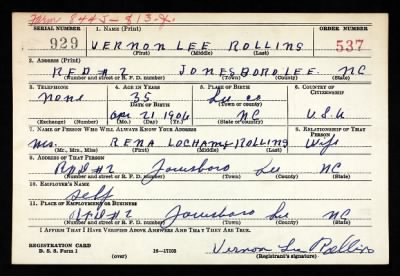 SERIAL NUMBER 1. NAME (Print) ORDER NUMBER
929 VERNON LEE ROLLINS 537
(First) (Middle) (Last)
2. ADDRESS (Print)
RFD #2 JONESBORO LEE NC
(Number and street or R. F. D. number) (Town) (County) (State)
3. TELEPHONE 4. AGE IN YEARS 5. PLACE OF BIRTH 6. COUNTRY OF CITIZENSHIP
None 35 Lee co
DATE OF BIRTH (Town or county)
Apr 21 1906 NC U.S.A
(Exchange) (Number) (Mo.) (Day) (Yr.) (State or country)
7. NAME OF PERSON WHO WILL ALWAYS KNOW YOUR ADDRESS 8. RELATIONSHIP OF THAT PERSON
Mrs. RENA ROLLINS Wife
(Mr., Mrs., Miss) (First) (Middle) (Last)
9. ADDRESS OF THAT PERSON
RFD #2 Jonesboro Lee NC
(Number and street or R. F. D. number) (Town) (County) (State)
10. EMPLOYER'S NAME
Self
11. PLACE OF EMPLOYMENT OR BUSINESS
RFD #2 Jonesboro Lee NC
(Number and street or R. F. D. number) (Town) (County) (State)
I AFFIRM THAT I HAVE VERIFIED ABOVE ANSWERS AND THAT THEY ARE TRUE.
REGISTRATION CARD
D. S. S. Form 1 (over) 16—17105 Vernon Lee Rollins
(Registrant's signature)